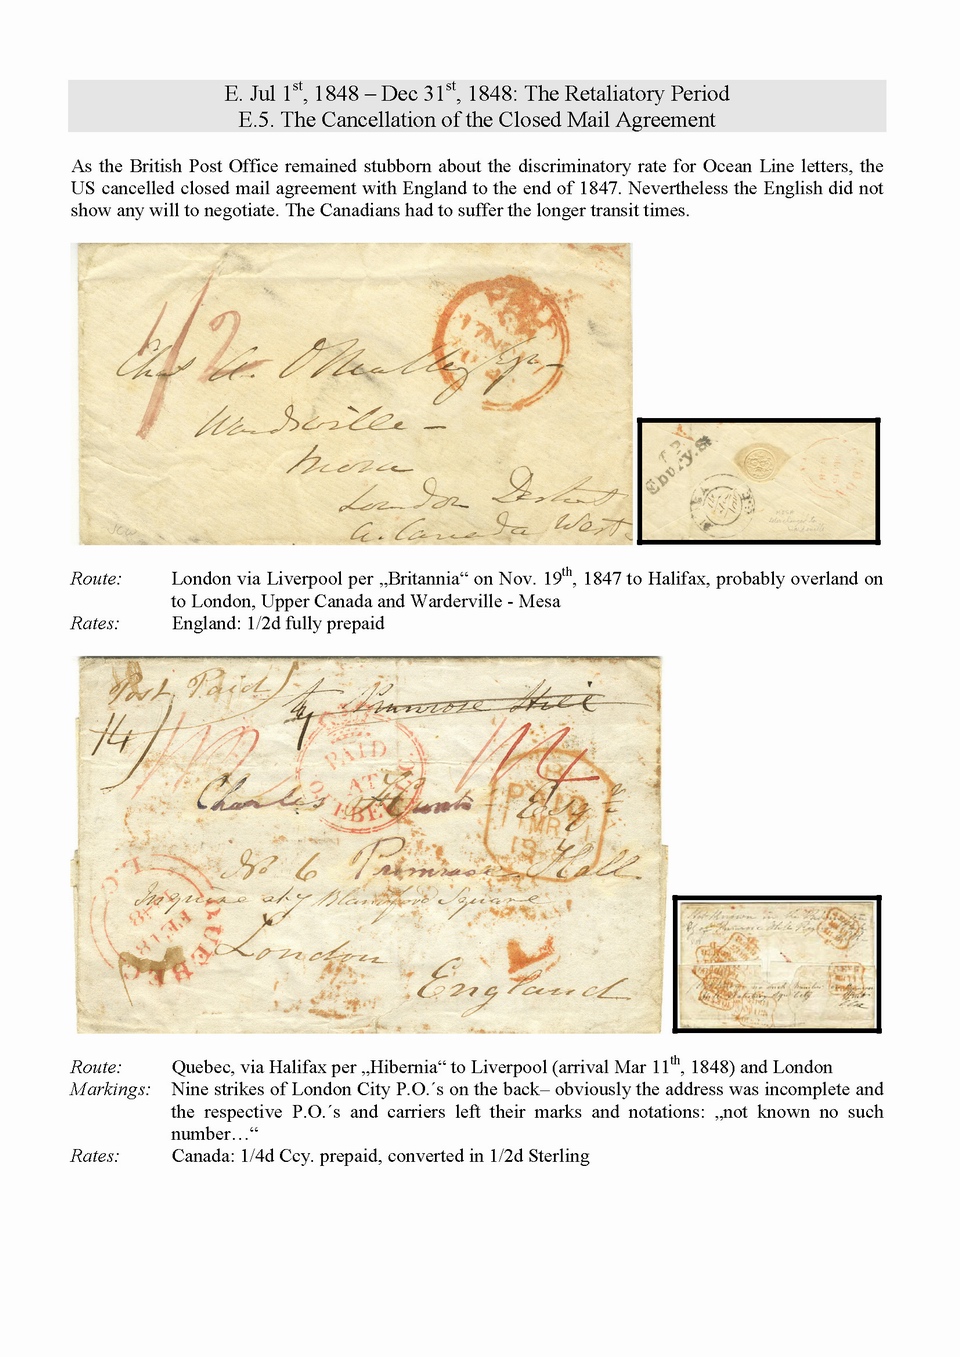 E. Jul 1st, 1848 – Dec 31st, 1848: The Retaliatory Period
E.5. The Cancellation of the Closed Mail Agreement
As the British Post Office remained stubborn about the discriminatory rate for Ocean Line letters, the
US cancelled closed mail agreement with England to the end of 1847. Nevertheless the English did not
show any will to negotiate. The Canadians had to suffer the longer transit times.
1/2
Chas A. O'Malley Esqr
Wardsville –
Mosa
London District
Canada West
Ebury.St
Route: London via Liverpool per „Britannia“ on Nov. 19th, 1847 to Halifax, probably overland on
to London, Upper Canada and Warderville - Mesa
Rates: England: 1/2d fully prepaid
Post Paid
1/4
Primrose Hill
PAID
AT
QUEBEC
PAID
Charles Hunt Esqre
No 6 Primrose Hall
Inquire at Blandford Square
London
England
QUEBEC
Route: Quebec, via Halifax per „Hibernia“ to Liverpool (arrival Mar 11th, 1848) and London
Markings: Nine strikes of London City P.O.´s on the back– obviously the address was incomplete and
the respective P.O.´s and carriers left their marks and notations: „not known no such
number…“
Rates: Canada: 1/4d Ccy. prepaid, converted in 1/2d Sterling